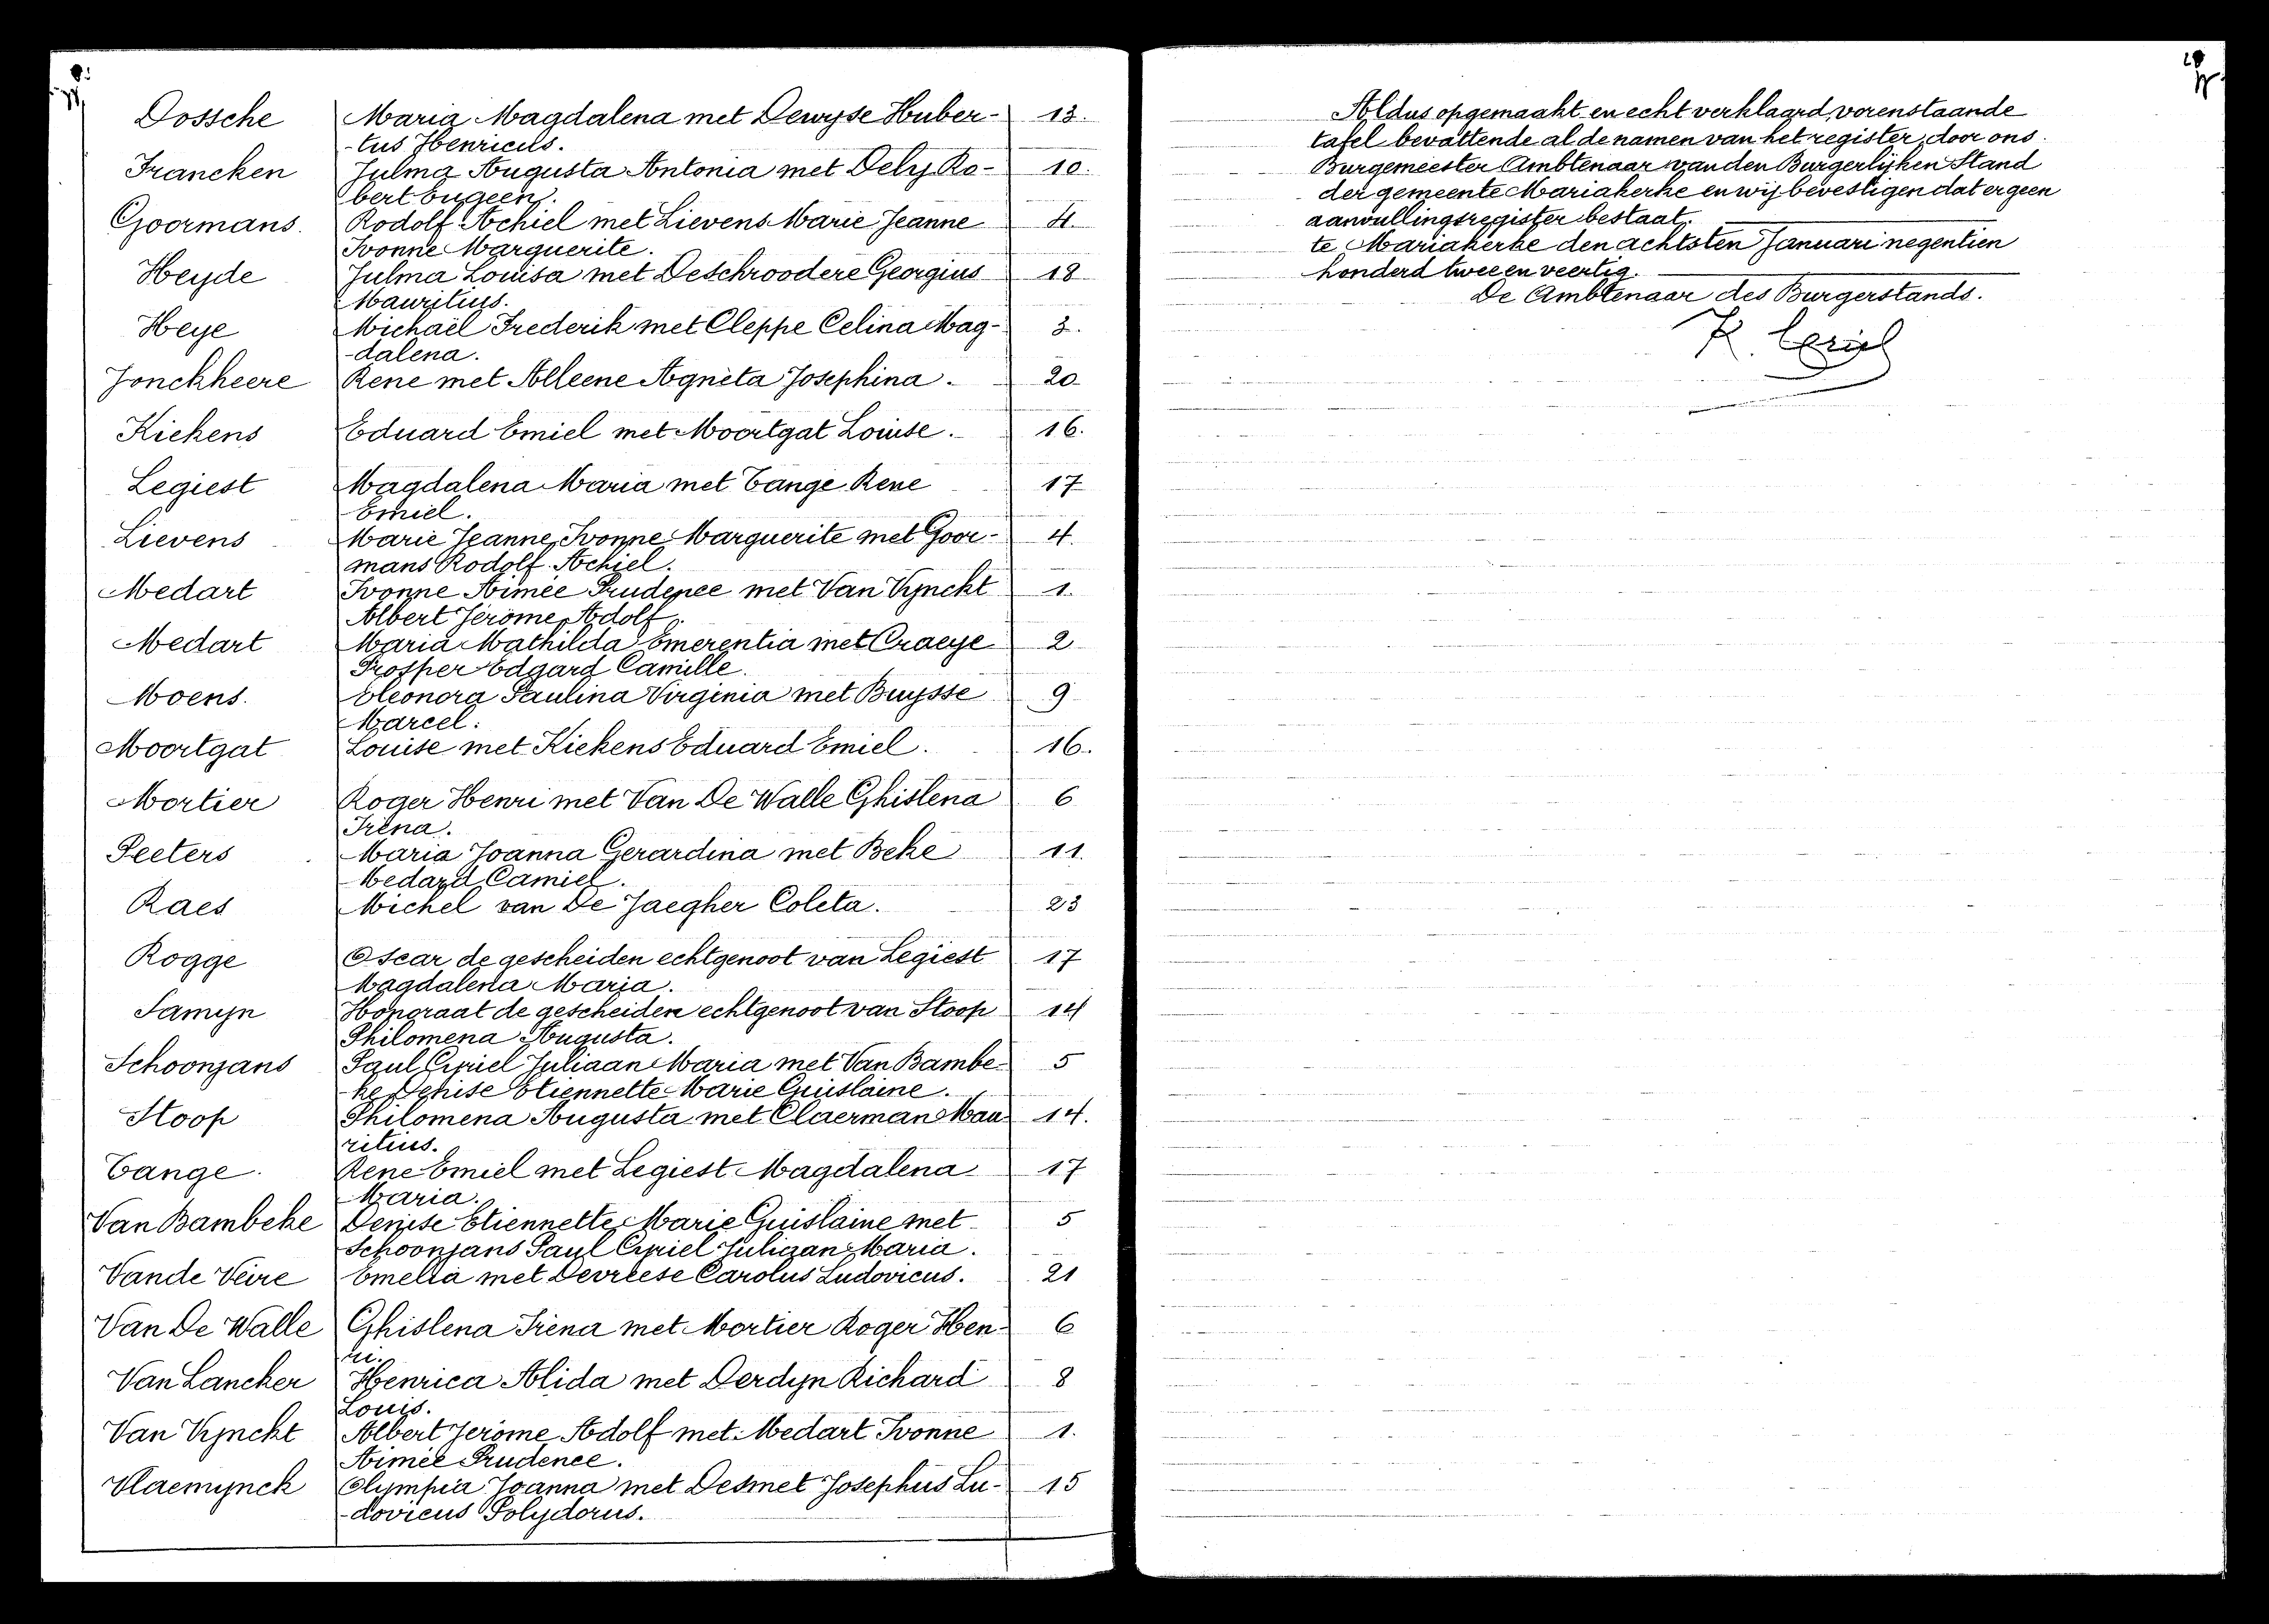 Dossche Maria Magdalena met Dewyse Huber- 13.
-tus Henricus.
Francken Julma Augusta Antonia met Dely Ro- 10.
bert Eugeen.
Goormans. Rodolf Achiel met Lievens Marie Jeanne 4.
Ivonne Marguerite.
Heyde Julma Louisa met Deschroodere Georgius 18
Mauritius.
Heye Michaël Frederik met Cleppe Celina Mag- 3.
-dalena.
Jonckheere Rene met Alleene Agneta Josephina. 20
Kiekens Eduard Emiel met Moortgat Louise. 16.
Legiest Magdalena Maria met Tange Rene 17
Emiel.
Lievens Marie Jeanne Ivonne Marguerite met Goor- 4.
mans Rodolf Achiel.
Medart Ivonne Aimée Prudence met Van Vynckt 1.
Albert Jérôme Adolf.
Medart Maria Mathilda Emerentia met Craeye 2
Prosper Edgard Camille.
Moens. Eleonora Paulina Virginia met Buysse 9
Marcel.
Moortgat Louise met Kiekens Eduard Emiel. 16.
Mortier Roger Henri met Van De Walle Ghislena 6
Irèna.
Peeters Maria Joanna Gerardina met Beke 11.
Medard Camiel.
Raes Michel van De Jaegher Coleta. 23
Rogge Oscar de gescheiden echtgenoot van Legiest 17
Magdalena Maria.
Samyn Honoraat de gescheiden echtgenoot van Stoop 14
Philomena Augusta.
Schoonjans Paul Cyriel Juliaan Maria met Van Bambe- 5
ke Denise Etiennette Marie Guislaine.
Stoop Philomena Augusta met Claerman Mau- 14.
ritius.
Tange. Rene Emiel met Legiest Magdalena 17
Maria.
Van Bambeke Denise Etiennette Marie Guislaine met 5
Schoonjans Paul Cyriel Juliaan Maria.
Vande Veire Emelia met Devreese Carolus Ludovicus. 21
Van De Walle Ghislena Irèna met Mortier Roger Hen- 6
ri.
Van Lancker Henrica Alida met Derdyn Richard 8
Louis.
Van Vynckt Albert Jerôme Adolf met Medart Ivonne 1.
Aimée Prudence.
Vlaemynck Olympia Joanna met Desmet Josephus Lu- 15
-dovicus Polydorus.
Aldus opgemaakt en echt verklaard, vorenstaande
tafel bevattende al de namen van het register, door ons
Burgemeester Ambtenaar van den Burgerlijken Stand
der gemeente Mariakerke en wij bevestigen dat er geen
aanvullingsregister bestaat.
te Mariakerke den achtsten Januari negentien
honderd twee en veertig.
De Ambtenaar des Burgerstands.